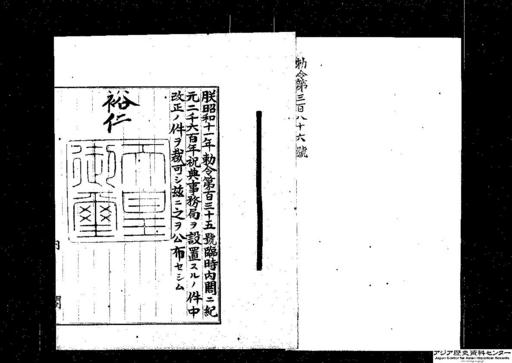 勅令第三百八十六號
朕昭和十一年勅令第百三十五號臨時內閣ニ紀
元二千六百年祝典事務局ヲ設置スルノ件中
改正ノ件ヲ裁可シ茲ニ之ヲ公布セシム
裕仁
天皇
御璽
內閣
アジア歴史資料センター
Japan Center for Asian Historical Records